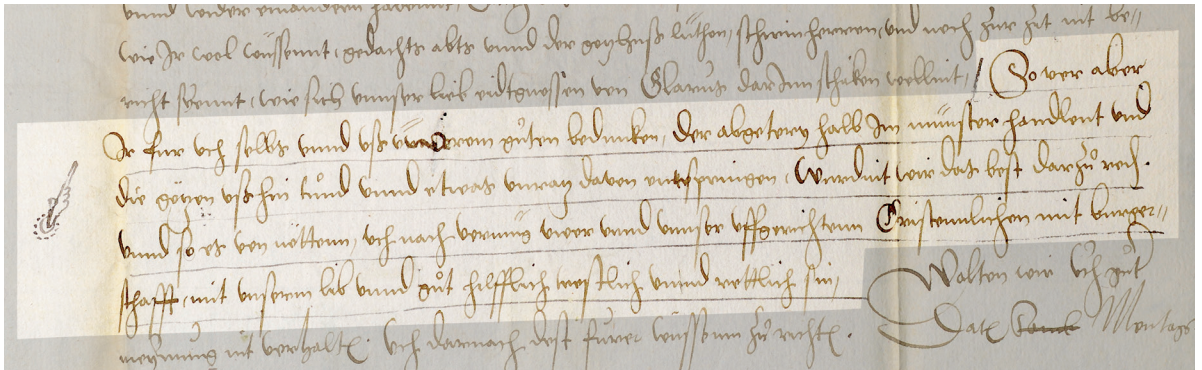 wie Ir wol wüssennt, gedachts abts unnd der gotzhuß lüthen, schirmherren, und noch zur zit nit be-
richt syennt, wie sich unnser lieb eidtgnossen von Glarus dar Inn schiken wellint, / So ver aber
Ir fur üch selbs unnd uß üwerem guten bedunken, der abgetery halb Im münster handlent und
die götzen ußhin tund unnd etwas unratz daven entspringen, Wurdint wir das best darzu red.
unnd so es von nötten, üch nach vermüg üwer unnd unnser uffgerichtenn Cristennlichen mit burger-
schafft, mit unserm lib unnd gut hilfflich trostlich unnd rettlich sin,
Wolten wir üch gut
meynung nit verhalten. Uch darnach dest fürer wüssenn zu richten. Dat Montags